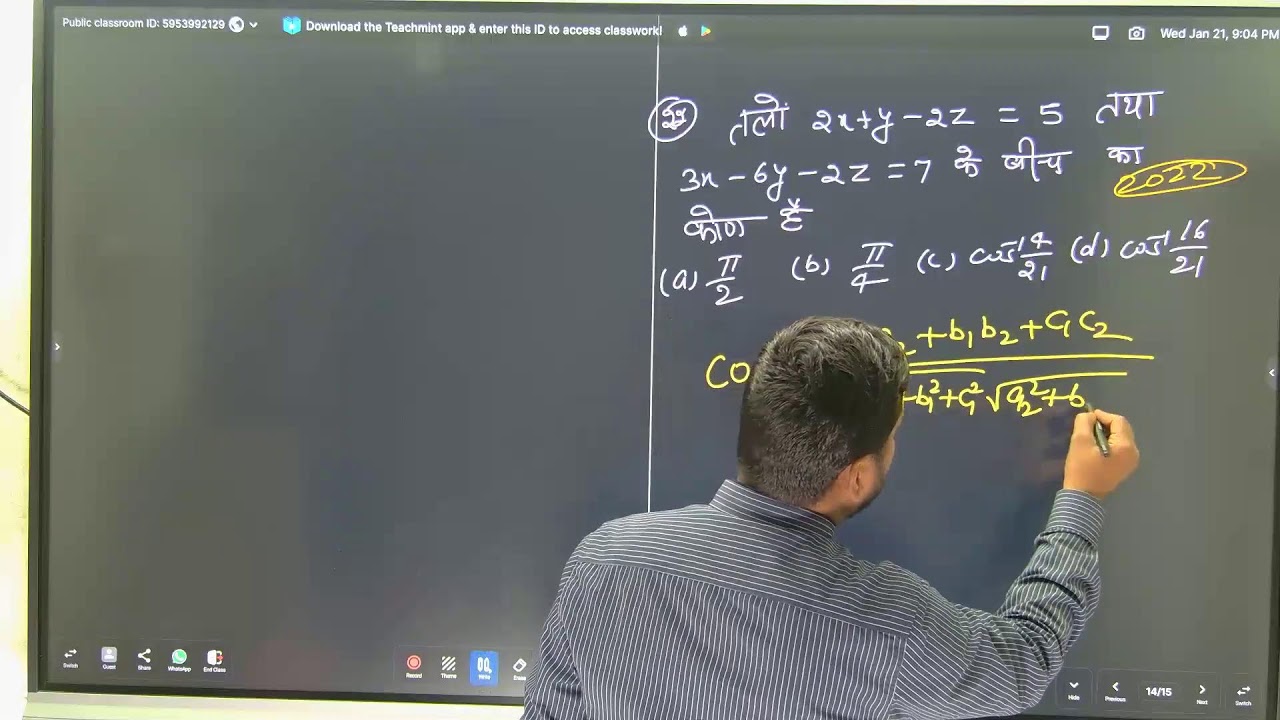 Public classroom ID: 5953992129
Download the Teachmint app & enter this ID to access classwork!
Wed Jan 21, 9:04 PM
तलों 2x+y-2z = 5 तथा
3x-6y-2z=7 के बीच का
2022
कोण है
(a) π/2 (b) π/4 (c) cos⁻¹ 4/21 (d) cos⁻¹ 16/21
Co
2 + b₁b₂ + c₁c₂
b₁²+c₁² √a₂²+b
Switch
Guest
Share
WhatsApp
End Class
Record
Theme
Write
Erase
Hide
Previous
14/15
Next
Switch